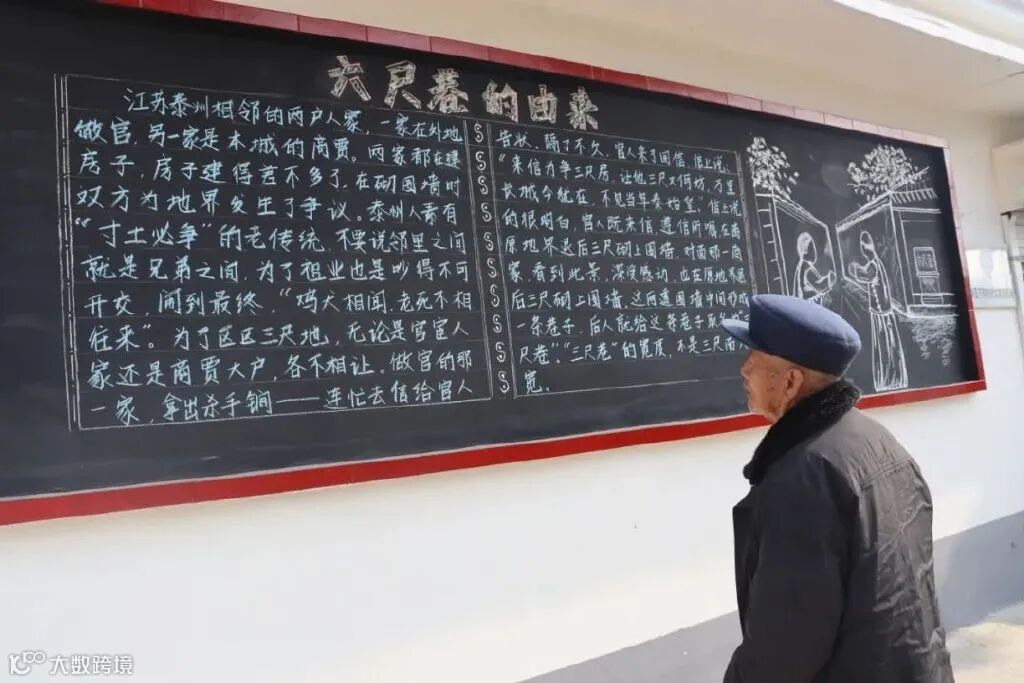 六尺巷的由来
江苏泰州相邻的两户人家，一家在外地
做官，另一家是本城的商贾。两家都在建
房子，房子建得差不多了，在砌围墙时
双方为地界发生了争议。泰州人素有
“寸土必争”的无传统，不要说邻里之间
就是兄弟之间，为了祖业也是吵得不可
开交，闹到最终，“鸡犬相闻，老死不相
往来”。为了区区三尺地，无论是官宦人
家还是商贾大户，各不相让。做官的那
一家，拿出杀手锏——连忙去信给官人
告状，隔了不久，官人来了回信，信上说，
“来信力争三尺房，让他三尺又何妨，万里
长城今犹在，不见当年秦始皇”信上说
的很明白，官人既来信遵信所嘱在南
原地界退后三尺砌上围墙，对面那一商
家，看到此景，深深感动，也在原地界退
后三尺砌上围墙，这两道围墙中间形成
一条巷子，后人就给这条巷子取名
尺巷”，“三尺巷”的宽度，不是三尺而
宽。
大数跨境